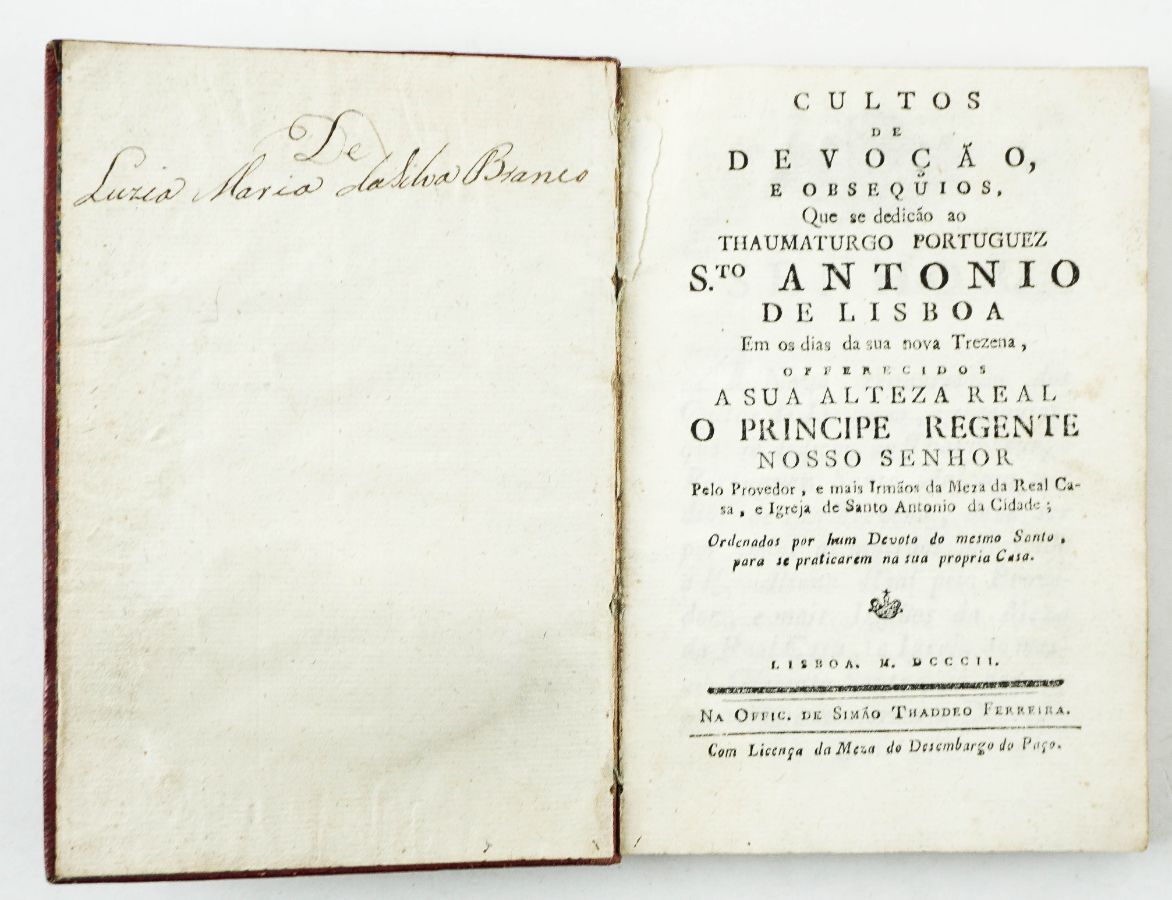 De
Luzia Maria da Silva Branco
CULTOS
DE
DEVOÇÃO,
E OBSEQUIOS,
Que se dedicão ao
THAUMATURGO PORTUGUEZ
S.TO ANTONIO
DE LISBOA
Em os dias da sua nova Trezena,
OFFERECIDOS
A SUA ALTEZA REAL
O PRINCIPE REGENTE
NOSSO SENHOR
Pelo Provedor, e mais Irmãos da Meza da Real Ca-
sa, e Igreja de Santo Antonio da Cidade;
Ordenados por hum Devoto do mesmo Santo,
para se praticarem na sua propria Casa.
LISBOA. M. DCCCII.
NA OFFIC. DE SIMÃO THADDEO FERREIRA.
Com Licença da Meza do Desembargo do Paço.